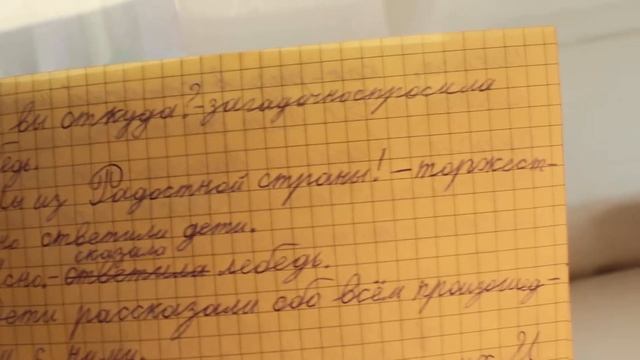 вы откуда?-загадочноспросила
едь.
ы из Радостной страны! - торжест-
но ответили дети.
сказала
сно,- ответила лебедь.
ети рассказали обо всём произошед-
с ними.